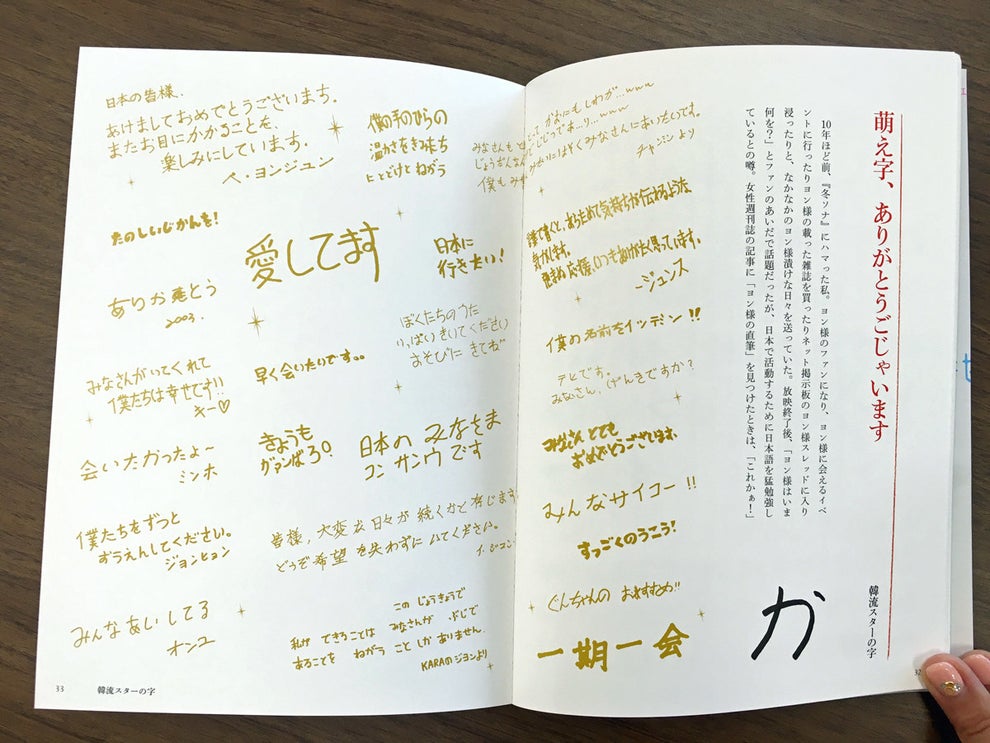 萌え字、ありがとうごじゃいます
10年ほど前、『冬ソナ』にハマった私。ヨン様のファンになり、ヨン様に会えるイベ
ントに行ったりヨン様の載った雑誌を買ったりネット掲示板のヨン様スレッドに入り
浸ったりと、なかなかのヨン様漬けな日々を送っていた。放映終了後、「ヨン様はいま
何を?」とファンのあいだで話題だったが、日本で活動するために日本語を猛勉強し
ているとの噂。女性週刊誌の記事に「ヨン様の直筆」を見つけたときは、「これかぁ!」
韓流スターの字
か
32
かおにもしわが…www
じょうだんですよ
みなさんにあいたいです。
チャンミンより
気持ちが伝わるような
気がします。
ージュンス
僕の名前をイッテミン!!
テとです。
みなさん、げんきですか?
みなさん とても
おめでとうございます。
みんなサイコー!!
すっごくのうこう!
ぐんちゃんの おすすめ!!
一期一会
日本の皆様、
あけましておめでとうございます。
またお目にかかることを、
楽しみにしています。
ペ・ヨンジュン
僕の手のひらの
温かさをきみたち
にとどけとねがう
たのしいじかんを!
愛してます
日本に
行きたい!
ありお蓙とう
2003.
ぼくたちのうた
いっぱいきいてください
あそびに きてね
みなさんがいてくれて
僕たちは幸せです!!
キー♡
早く会いたいです。。
会いたかったよ~
ミンホ
きょうも
ガァンばろ。
日本の みなさま
コン サンウ です
僕たちをずっと
おうえんしてください。
ジョンヒョン
皆様,大変な日々が続くかと存じます
どうぞ希望を失わずにいてください。
みんなあいしてる
オンユ
この じょうきょうで
私が できることは みなさんが ぶじで
あることを ねがう ことしか ありません。
KARAのジヨンより
33
韓流スターの字